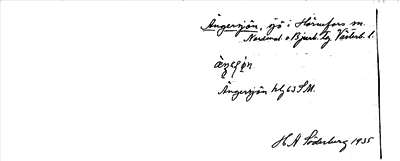 Ängersjön, sjö i Hörnefors sn.
Nordmal. o Bjurh. tg Västerb. l.
Ängersjön htg 63 S.M.
H A Söderberg 1935